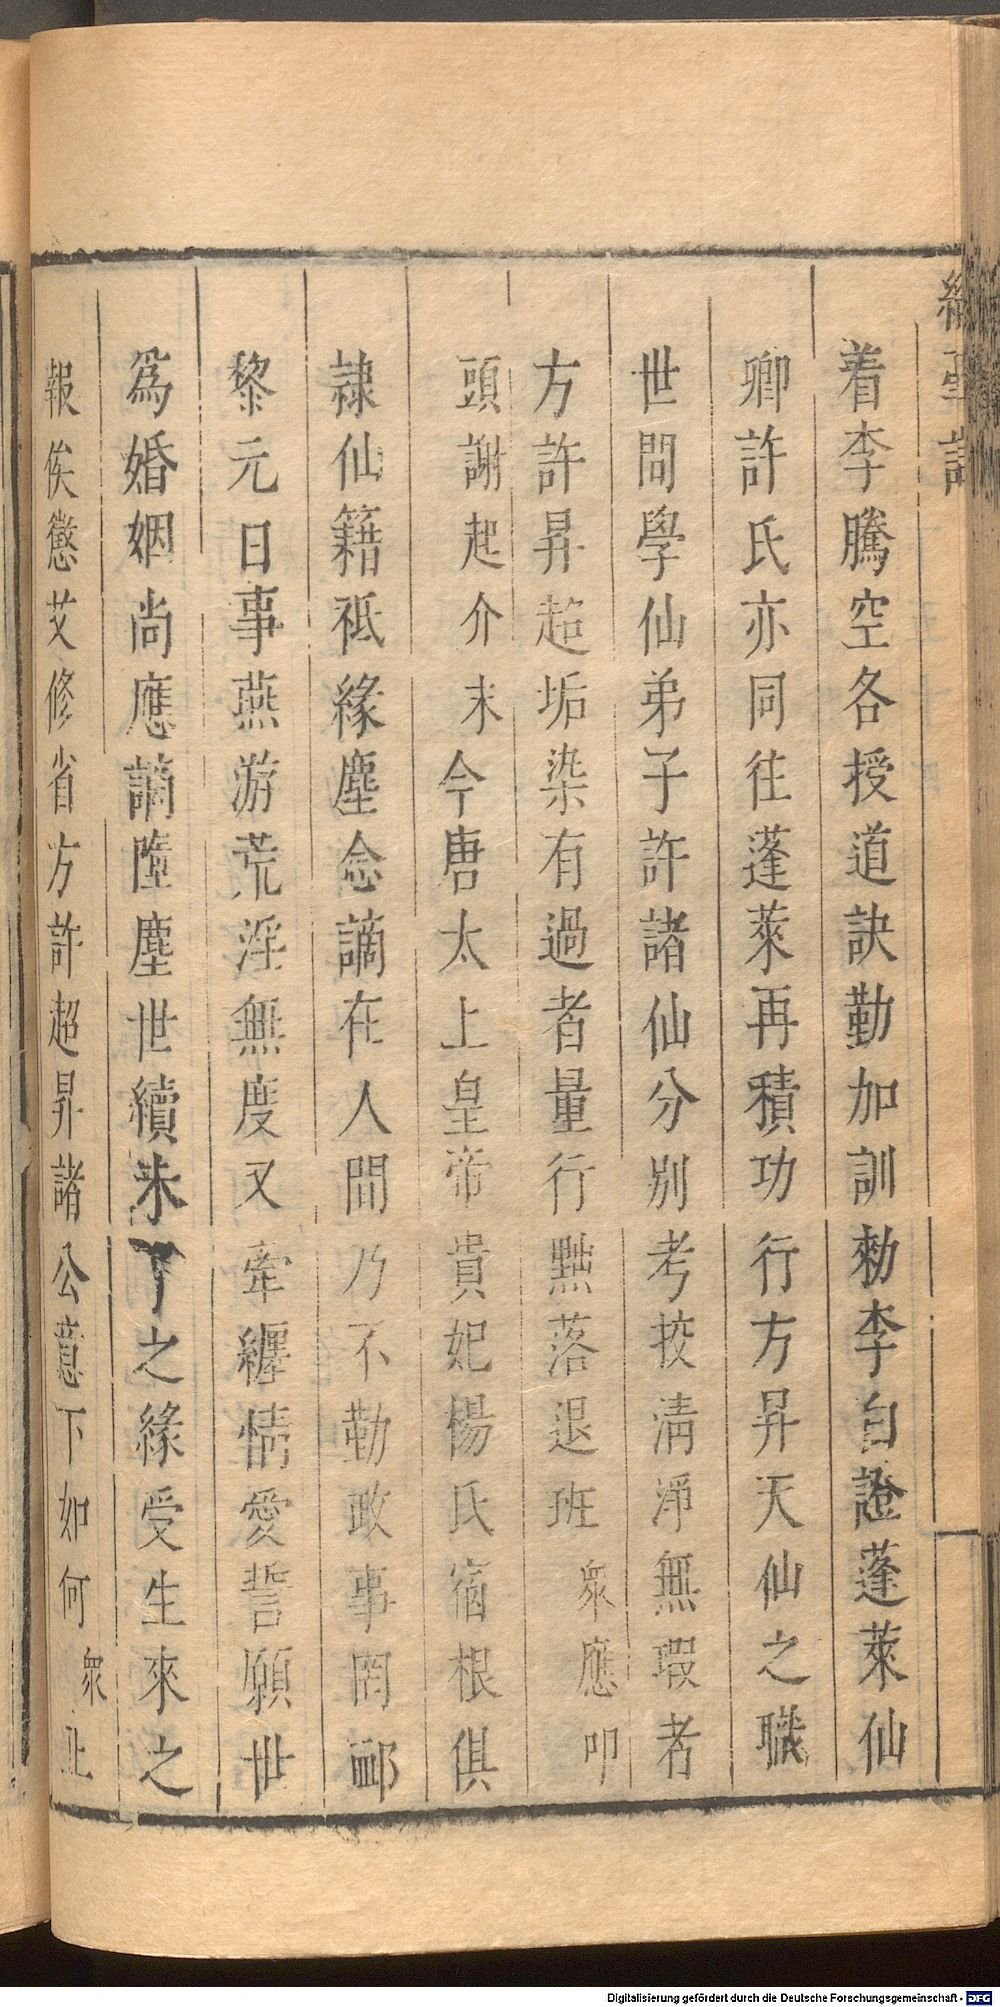 着李騰空各授道訣勤加訓勑李白證蓬萊仙
卿許氏亦同往蓬萊再積功行方昇天仙之職
世間學仙弟子許諸仙分別考挍清淨無瑕者
方許昇超垢染有過者量行黜落退班衆應叩
頭謝起介末今唐太上皇帝貴妃楊氏宿根俱
隷仙籍祗緣塵念謫在人間乃不勤政事罔卹
黎元日事燕游荒淫無度又牽纏情愛誓願世
爲婚姻尚應謫墮塵世續未了之緣受生來之
報俟懲艾修省方許超昇諸公意下如何衆
Digitalisierung gefördert durch die Deutsche Forschungsgemeinschaft - DFG